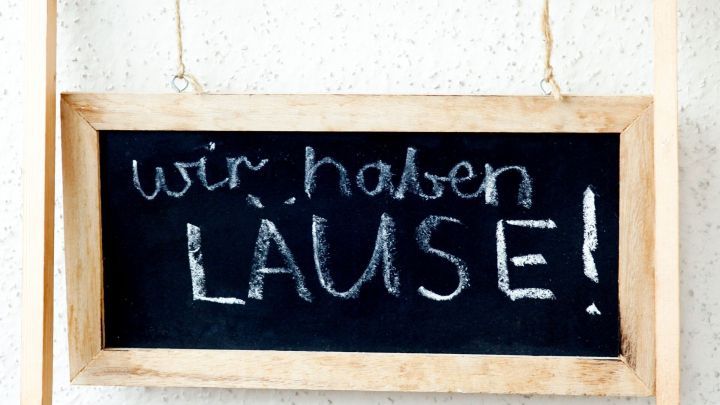 wir haben
LÄUSE!